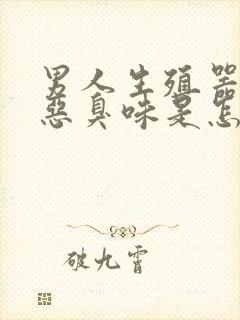 男人生殖器
恶臭味是怎
破九霄